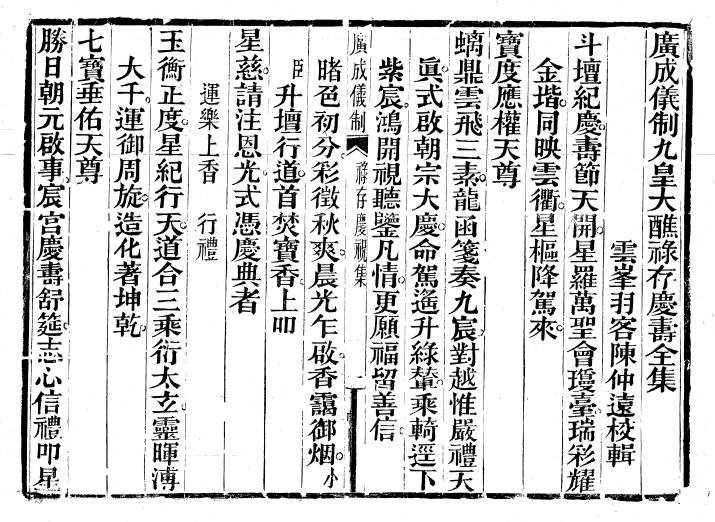 廣成儀制九皇大醮祿存慶壽全集
雲峯羽客陳仲遠校輯
斗壇紀慶壽節天開星羅萬聖會瓊臺瑞彩耀
金堦同映雲衢星樞降駕來
寶度應權天尊
螭鼎雲飛三素龍函箋奏九宸對越惟嚴禮天
眞式啟朝宗大慶命駕遙升綠輦乘輢逕下
紫宸鴻開視聽鑒凡情更願福留善信
廣成儀制 祿存慶祝集 一
暏色初分彩徵秋爽晨光乍啟香靄御烟小
臣升壇行道首焚寶香上叩
星慈請注恩光式憑慶典者
運樂上香 行禮
玉衡正度星紀行天道合三乘衍太玄靈暉溥
大千運御周旋造化著坤乾
七寶垂佑天尊
勝日朝元啟事宸宮慶壽舒筵志心信禮叩星